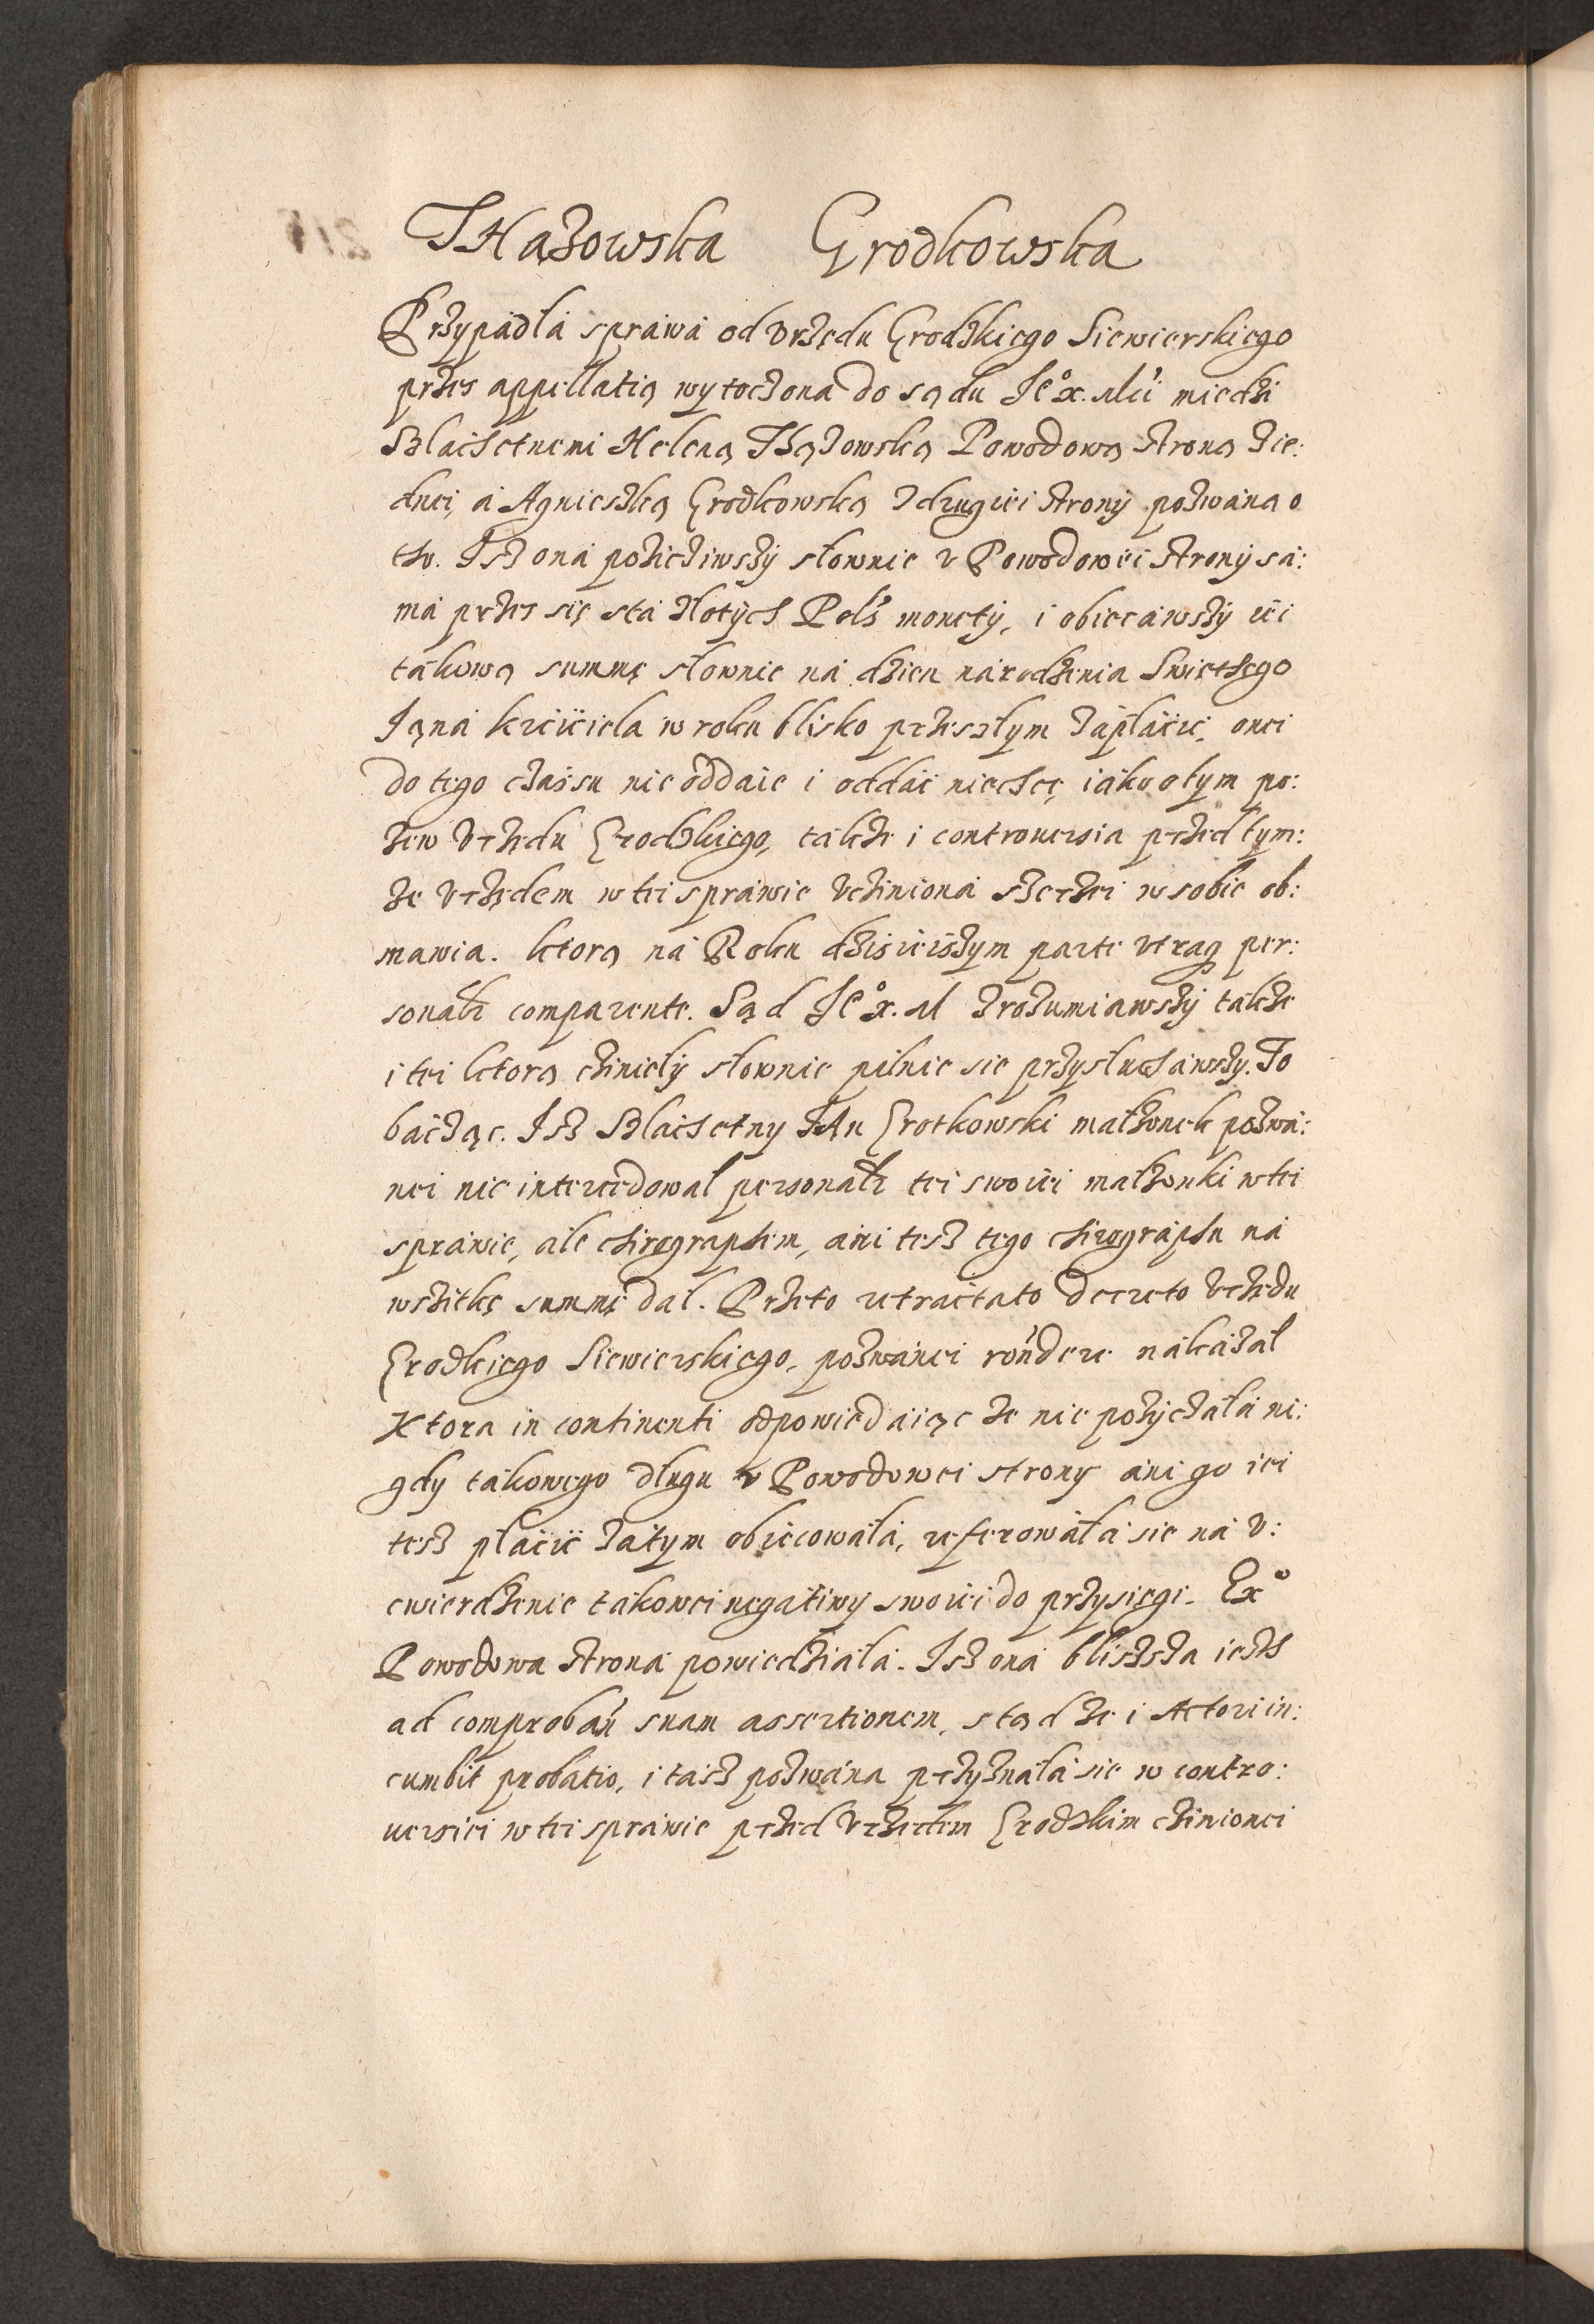 THązowska Grodkowska
Przypadła sprawá od Vrzędu Grodzkiego Siewierskiego
przes appellatią wytoczona do sądu Jeº x. Mći miedzi
Szlaichetnemi Heleną Thązowską Powodową stroną zie:
dnei, á Agnieszką Grodkowską z drugiei strony pozwáną o
tho. Isz oná pożicziwszÿ słownie v Powodowei stronÿ sá:
má przes się sta złotÿch Pols' monetÿ, i obiecawszÿ iei
tákową summę słownie ná dzien národzenia Swięthego
Janá krzciciela w roku blisko przeszłym zápłácic, onei
do tego czássu nie oddaie i oddáć niechce, iáko o tym po:
zew Vrzędu Grodzkiego, tákże i controuersia przed tym:
że Vrzędem w tei spráwie vcziniona szerzei w sobie ob:
mawia. ktorą ná Roku dzisieiszym parte vtraq per:
sonałr comparente. Sąd Jeº x. M zrozumiawszÿ tákże
i tei ktorą czinielÿ słownie pilnie sie przysłuchawszy. To
bacząc. Isz Szlaichetny Jan Grotkowski małżonek pozwá:
nei nie intercedował personałr tei swoiei małżonki w tei
spráwie, ále chirographem, áni tesz tego chirographu ná
wszitkę summę dał. Przeto retractato decreto Vrzędu
Grodzkiego Siewierskiego, pozwánei rondere nákázał
Ktora in continenti odpowiedáiąc że nie pożyczáłá ni:
gdy tákowego długu v Powodowei strony áni go iei
tesz płácić zátym obiecowáłá, referowáłá sie ná V:
twierdzenie tákowei negatiwy swoiei do przysięgi. Exº
Powodowa stroná powiedziáłá. Isz oná bliższa iesth
ad comproban suam assertionem, stąd że i Actori in:
cumbit probatio, i táisz pozwána przyznáłá sie w contro:
uersiei w tei spráwie przed Vrzędem Grodzkim czinionei